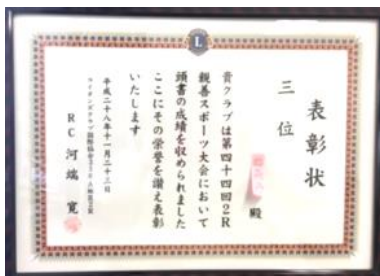 表彰状
三位
殿
貴クラブは第四十四回2R
親善スポーツ大会において
頭書の成績を収められました
ここにその栄誉を讃え表彰
いたします
平成二十八年十一月二十三日
RC 河端 寛
L